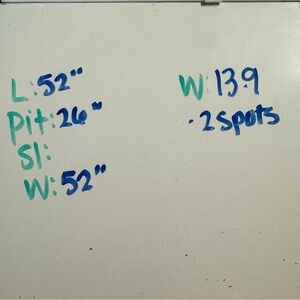 L: 52"
Pit: 26"
Sl:
W: 52"
W: 139
· 2 Spots